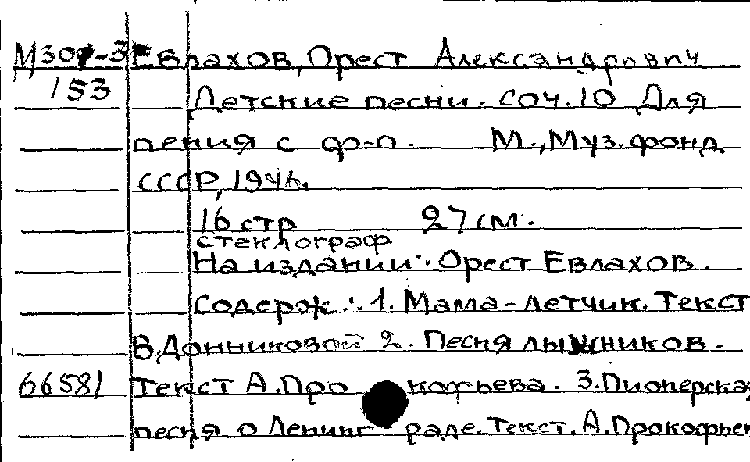 М301-3 Евлахов, Орест Александрович
153 Детские песни. соч. 10 Для
пения с ф-п. М., Муз. фонд
СССР, 1946.
16 стр 27 см.
стеклограф
На издании: Орест Евлахов.
содерж: 1. Мама-летчик. Текст
В. Донниковой 2. Песня лыжников.
66581 Текст А. Прокофьева. 3. Пионерская
песня о Ленинграде. Текст. А. Прокофьев